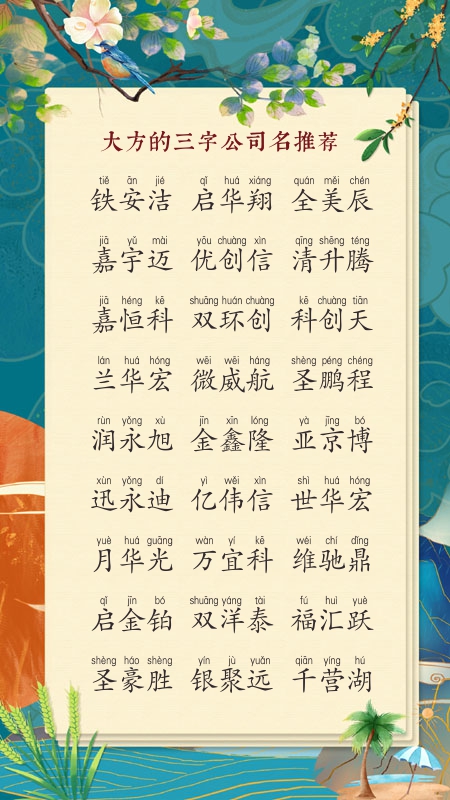 大方的三字公司名推荐
tiě ān jié qǐ huá xiáng quán měi chén
铁安洁 启华翔 全美辰
jiā yǔ mài yōu chuàng xìn qīng shēng téng
嘉宇迈 优创信 清升腾
jiā héng kē shuāng huán chuàng kē chuàng tiān
嘉恒科 双环创 科创天
lán huá hóng wēi wēi háng shèng péng chéng
兰华宏 微威航 圣鹏程
rùn yǒng xù jīn xīn lóng yà jīng bó
润永旭 金鑫隆 亚京博
xùn yǒng dí yì wěi xìn shì huá hóng
迅永迪 亿伟信 世华宏
yuè huá guāng wàn yí kē wéi chí dǐng
月华光 万宜科 维驰鼎
qǐ jīn bó shuāng yáng tài fú huì yuè
启金铂 双洋泰 福汇跃
shèng háo shèng yín jù yuǎn qiān yíng hú
圣豪胜 银聚远 千营湖